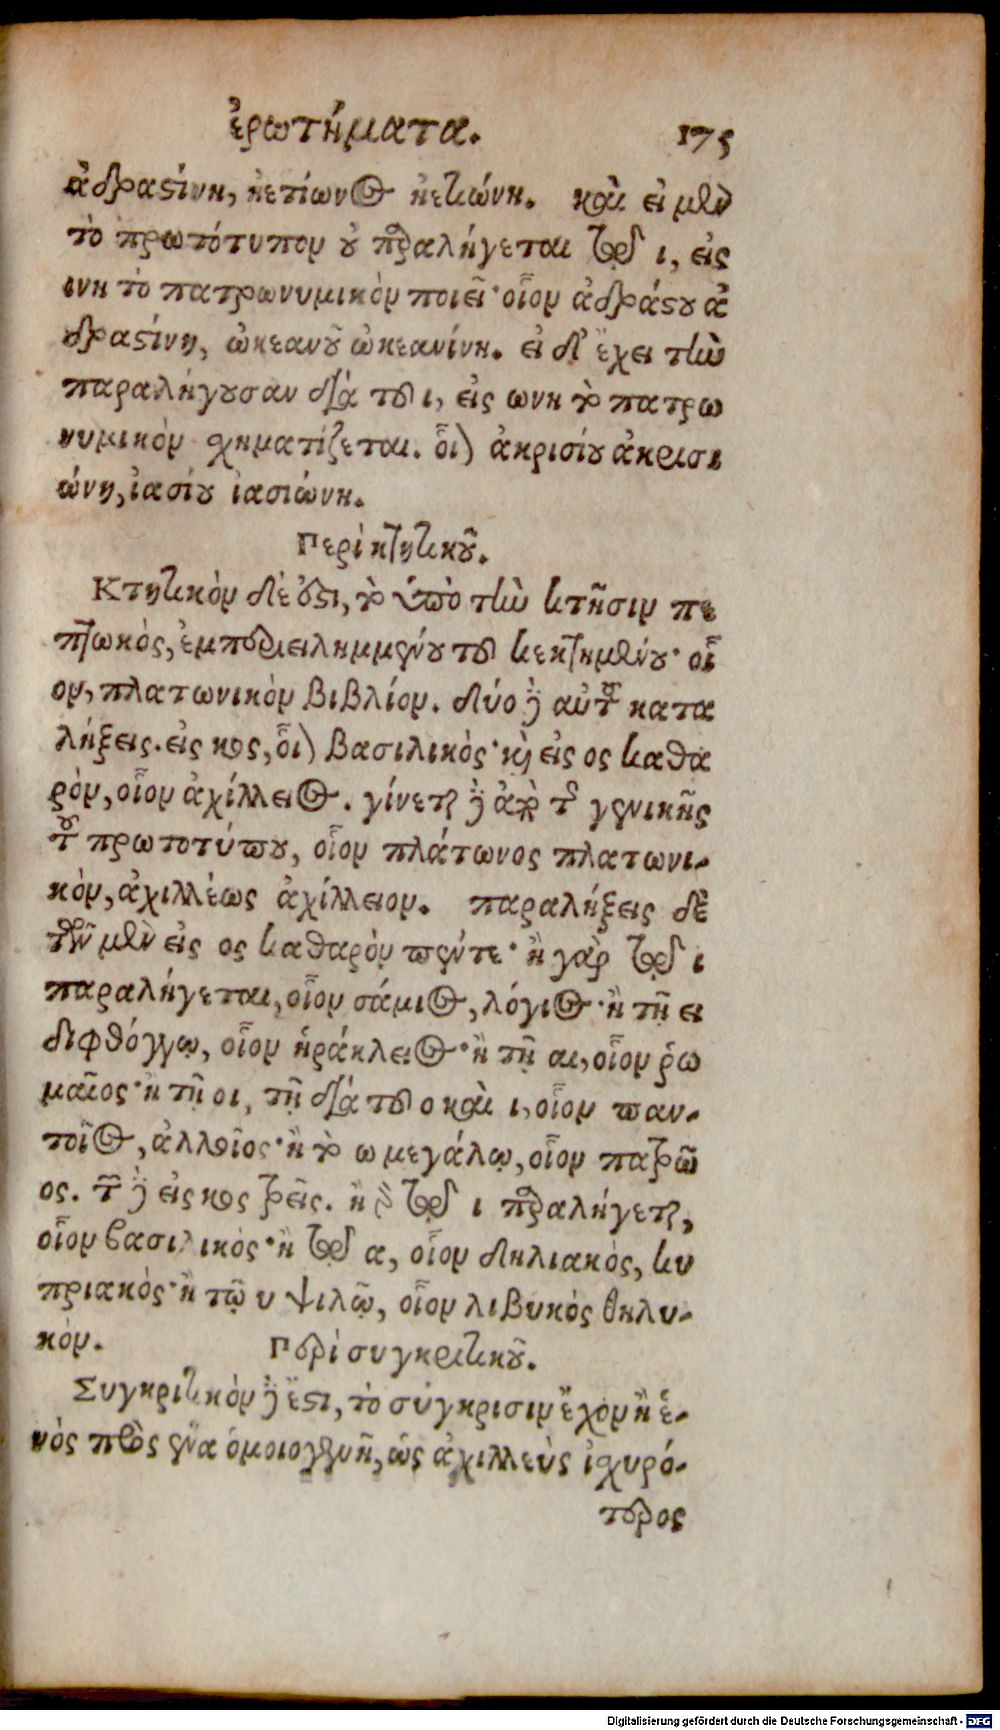 ἐρωτήματα. 175
ἀδραστίνη, ἠετίωνος ἠετιώνη. καὶ εἰ μὲν
τὸ πρωτότυπον οὐ παραλήγεται τῷ ι, εἰς
ινη τὸ πατρωνυμικὸν ποιεῖ· οἷον ἀδράστου ἀ
δραστίνη, ὠκεανοῦ ὠκεανίνη. εἰ δ' ἔχει τὴν
παραλήγουσαν διὰ τοῦ ι, εἰς ωνη τὸ πατρω
νυμικὸν σχηματίζεται. οἷον ἀκρισίου ἀκρισι
ώνη, ἰασίου ἰασιώνη.
Περὶ κτητικοῦ.
Κτητικὸν δέ ἐστι, τὸ ὑπὸ τὴν κτῆσιν πε
πτωκὸς, ἐμπεριειλημμένου τοῦ κεκτημένου· οἷ
ον, πλατωνικὸν βιβλίον. δύο δὲ αὐτοῦ κατα
λήξεις. εἰς κος, οἷον βασιλικός· καὶ εἰς ος καθα
ρὸν, οἷον ἀχίλλειος. γίνεται δὲ ἀπὸ τῆς γενικῆς
τοῦ πρωτοτύπου, οἷον πλάτωνος πλατωνι-
κὸν, ἀχιλλέως ἀχίλλειον. παραλήξεις δὲ
τῶν μὲν εἰς ος καθαρὸν πέντε· ἢ γὰρ τῷ ι
παραλήγεται, οἷον σάμιος, λόγιος· ἢ τῇ ει
διφθόγγῳ, οἷον ἡράκλειος· ἢ τῇ αι, οἷον ῥω
μαῖος· ἢ τῇ οι, τῇ διὰ τοῦ ο καὶ ι, οἷον παν-
τοῖος, ἀλλοῖος· ἢ τὸ ω μεγάλῳ, οἷον πατρῶ
ος. τῶν δὲ εἰς κος τρεῖς. ἢ γὰρ τῷ ι παραλήγεται,
οἷον βασιλικός· ἢ τῷ α, οἷον δηλιακὸς, κυ
πριακός· ἢ τῷ υ ψιλῷ, οἷον λιβυκὸς θηλυ-
κόν. Περὶ συγκριτικοῦ.
Συγκριτικὸν δέ ἐστι, τὸ σύγκρισιν ἔχον ἢ ἑ-
νὸς πρὸς ἕνα ὁμοιογενῆ, ὡς ἀχιλλεὺς ἰσχυρό-
τερος
Digitalisierung gefördert durch die Deutsche Forschungsgemeinschaft - DFG